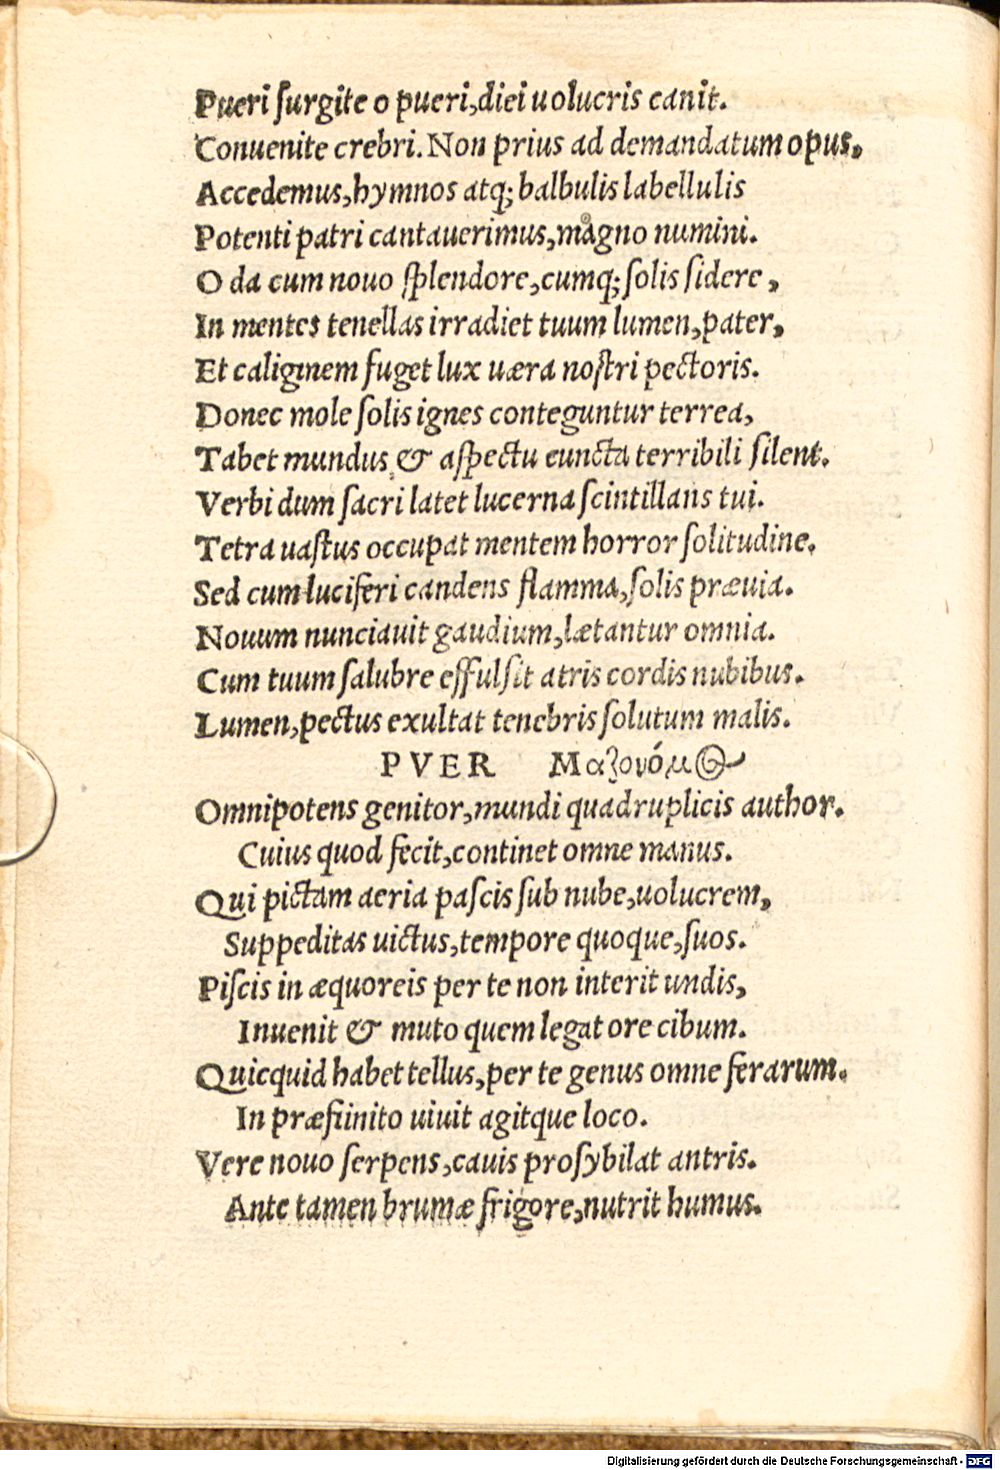 Pueri ſurgite o pueri,diei uolucris canit.
Conuenite crebri. Non prius ad demandatum opus,
Accedemus,hymnos atq; balbulis labellulis
Potenti patri cantauerimus,magno numini.
O da cum nouo ſplendore,cumq; ſolis ſidere ,
In mentes tenellas irradiet tuum lumen,pater,
Et caliginem fuget lux uæra noſtri pectoris.
Donec mole ſolis ignes conteguntur terrea,
Tabet mundus, & aſpectu cuncta terribili ſilent.
Verbi dum ſacri latet lucerna ſcintillans tui.
Tetra uaſtus occupat mentem horror ſolitudine.
Sed cum luciferi candens flamma,ſolis præuia.
Nouum nunciauit gaudium,lætantur omnia.
Cum tuum ſalubre effulſit atris cordis nubibus.
Lumen,pectus exultat tenebris ſolutum malis.
PVER Μαζονόμ
Omnipotens genitor,mundi quadruplicis author.
Cuius quod fecit,continet omne manus.
Qui pictam aeria paſcis ſub nube,uolucrem,
Suppeditas uictus,tempore quoque,ſuos.
Piſcis in æquoreis per te non interit undis,
Inuenit & muto quem legat ore cibum.
Quicquid habet tellus,per te genus omne ferarum.
In præfinito uiuit agitque loco.
Vere nouo ſerpens,cauis proſybilat antris.
Ante tamen brumæ frigore,nutrit humus.
Digitalisierung gefördert durch die Deutsche Forschungsgemeinschaft - DFG